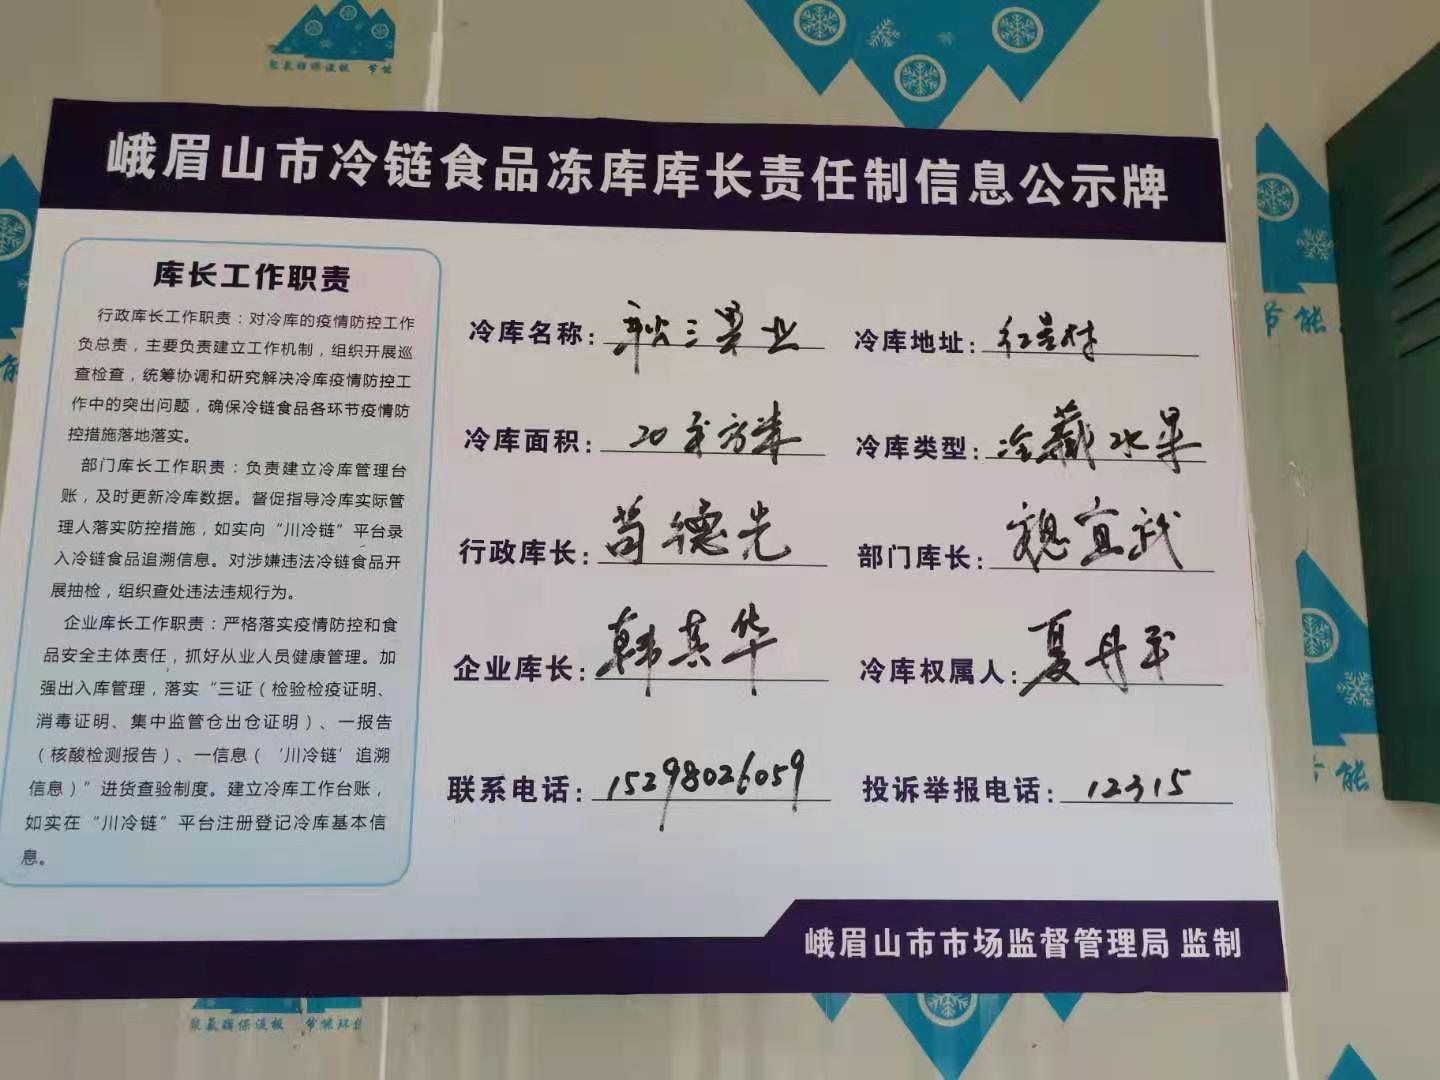 聚氨酯保温板 节能
峨眉山市冷链食品冻库库长责任制信息公示牌
库长工作职责
行政库长工作职责：对冷库的疫情防控工作
负总责，主要负责建立工作机制，组织开展巡
查检查，统筹协调和研究解决冷库疫情防控工
作中的突出问题，确保冷链食品各环节疫情防
控措施落地落实。
部门库长工作职责：负责建立冷库管理台
账，及时更新冷库数据。督促指导冷库实际管
理人落实防控措施，如实向“川冷链”平台录
入冷链食品追溯信息。对涉嫌违法冷链食品开
展抽检，组织查处违法违规行为。
企业库长工作职责：严格落实疫情防控和食
品安全主体责任，抓好从业人员健康管理。加
强出入库管理，落实“三证（检验检疫证明、
消毒证明、集中监管仓出仓证明）、一报告
（核酸检测报告）、一信息（‘川冷链’追溯
信息）”进货查验制度。建立冷库工作台账，
如实在“川冷链”平台注册登记冷库基本信
息。
冷库名称：三果业
冷库地址：红星村
冷库面积：20平方米
冷库类型：冷藏水果
行政库长：苟德光
部门库长：魏宜武
企业库长：韩其华
冷库权属人：夏丹平
联系电话：15298026059
投诉举报电话：12315
峨眉山市市场监督管理局 监制
节能
节能
聚氨酯保温板 节能环保